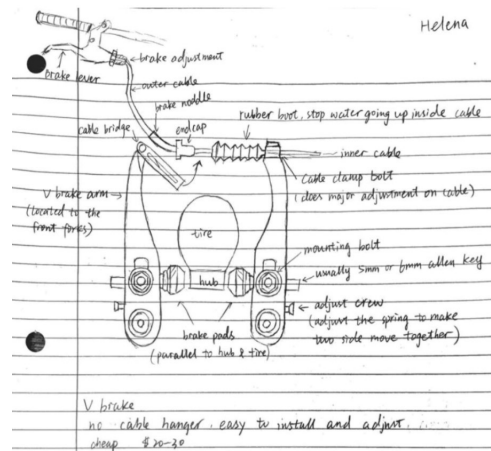 Helena
brake adjustment
brake lever
outer cable
brake noddle
endcap
cable bridge
rubber boot, stop water going up inside cable
inner cable
cable clamp bolt
(does major adjustment on cable)
V brake arm
(located to the
front forks)
tire
mounting bolt
hub
usually 5mm or 6mm allen key
adjust crew
(adjust the spring to make
two side move together)
brake pads
(parallel to hub & tire)
V brake
no cable hanger, easy to install and adjust,
cheap $20-30